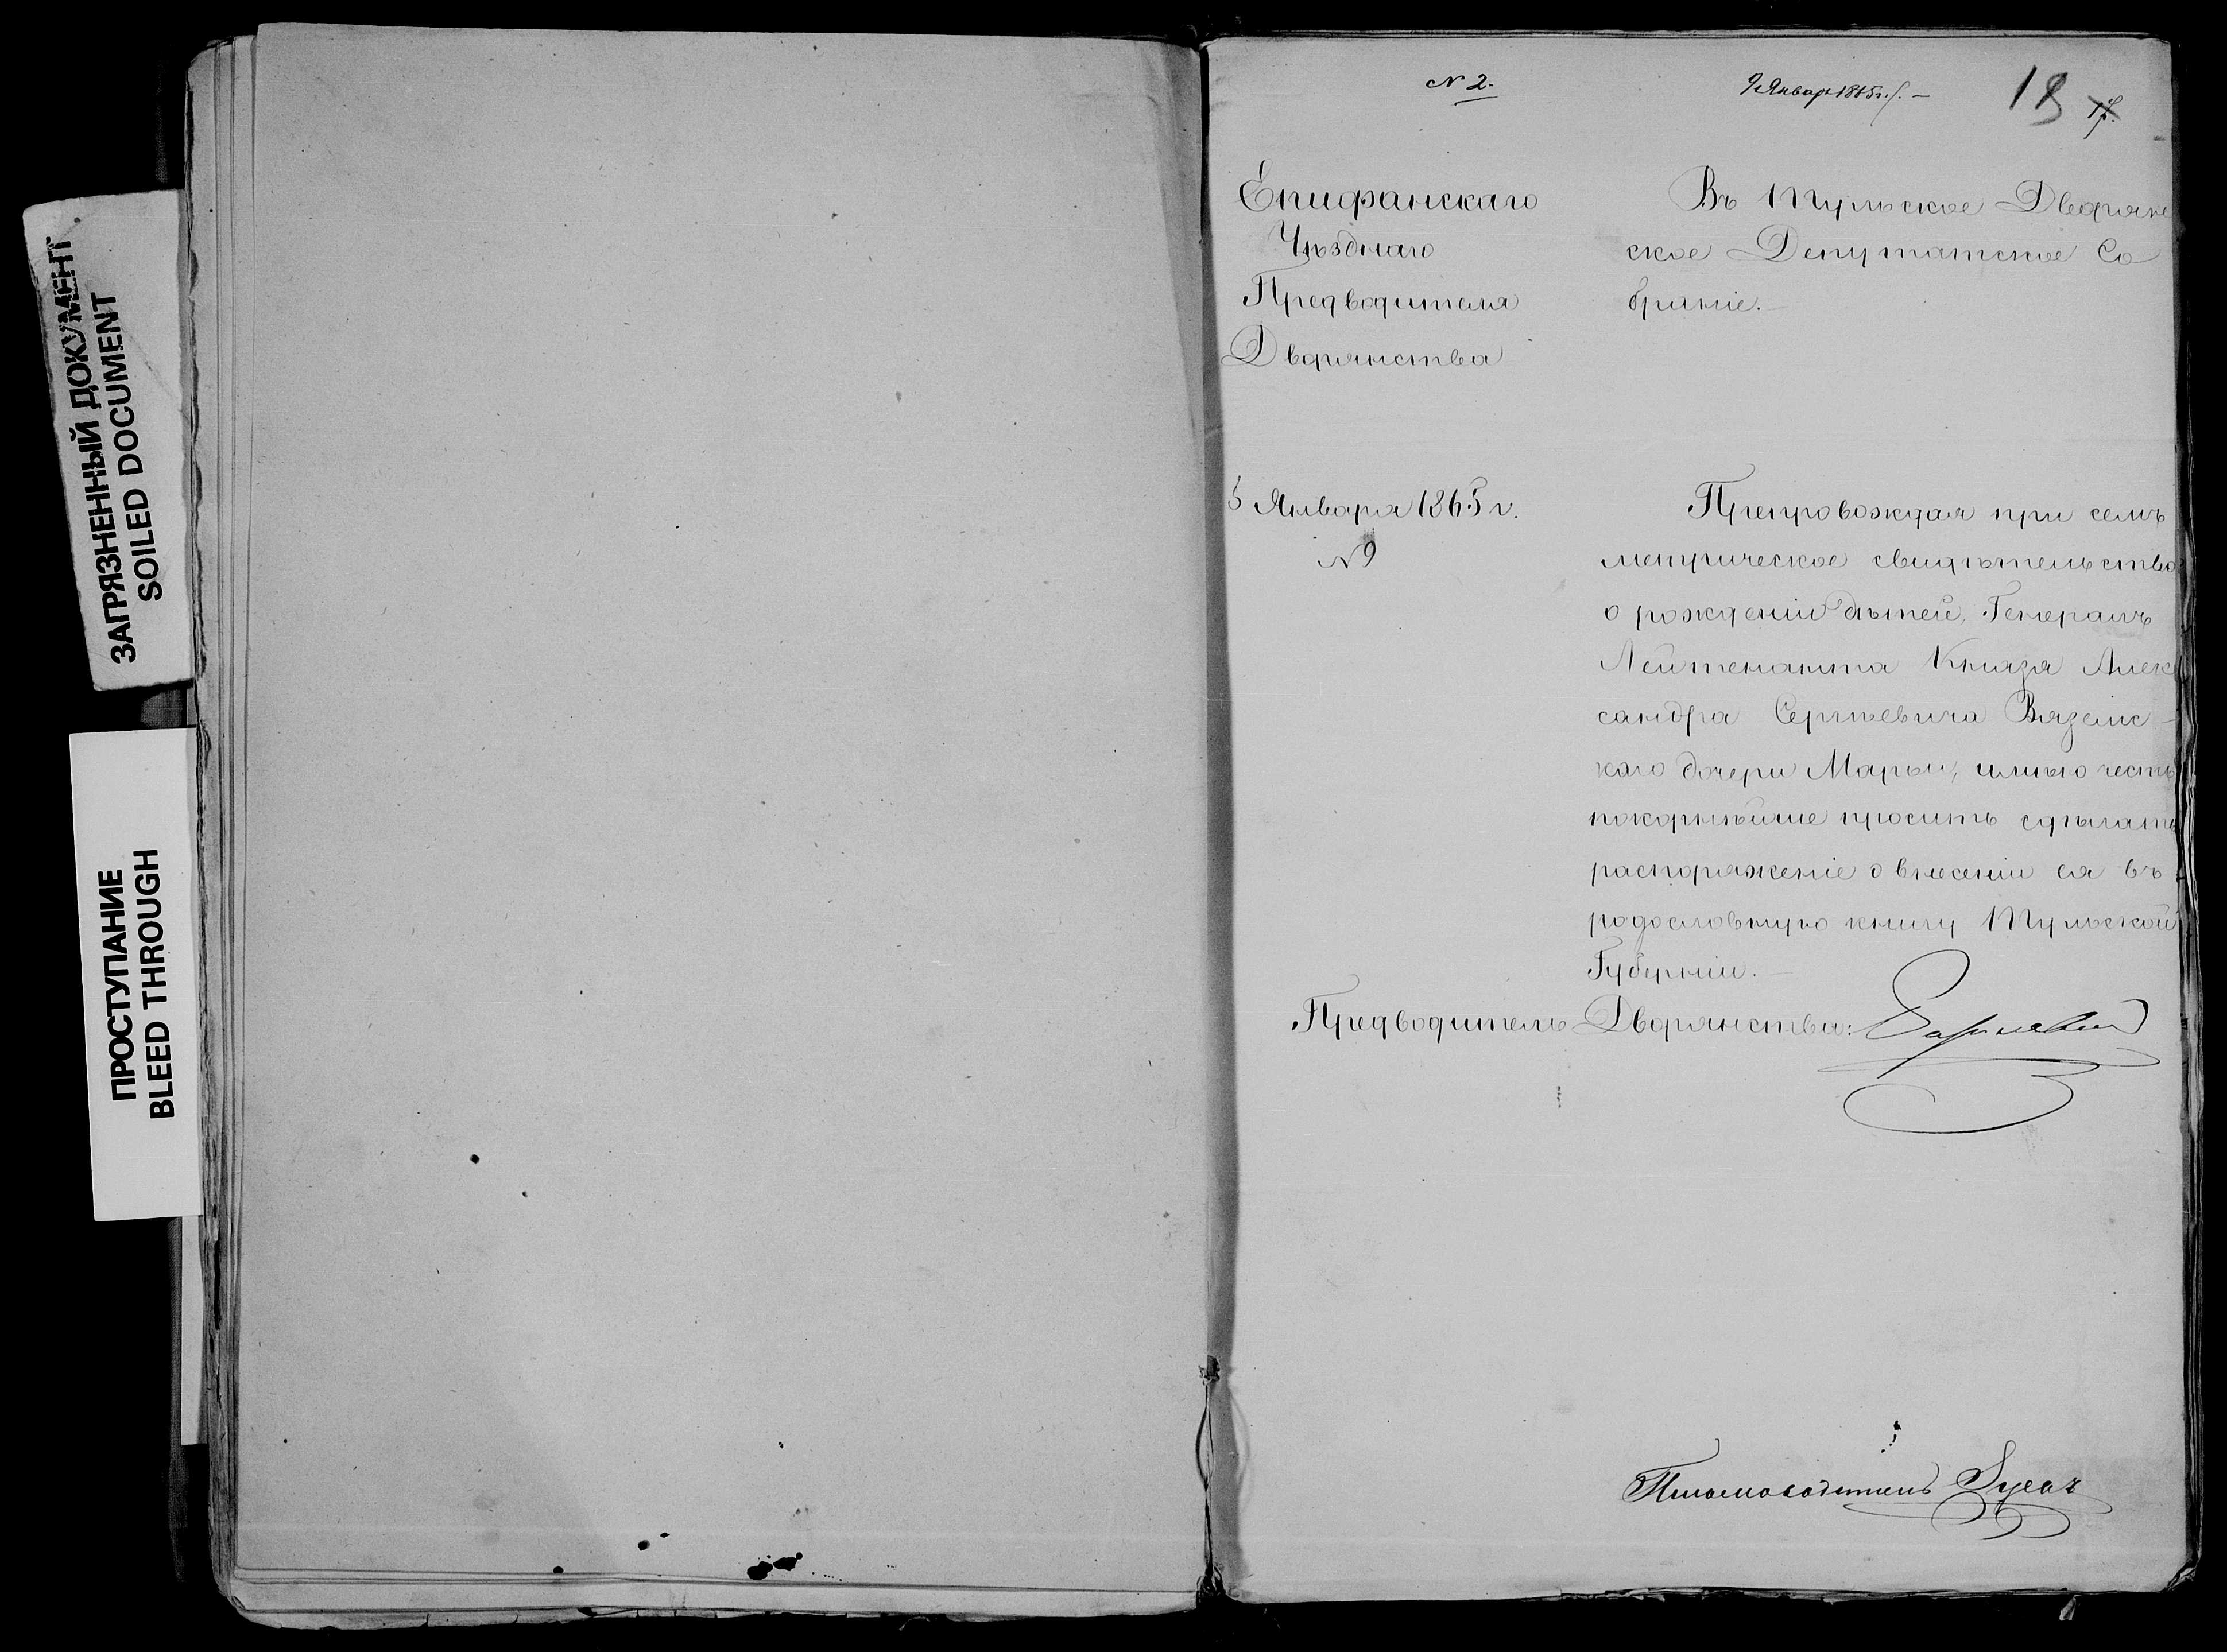 ЗАГРЯЗНЕННЫЙ ДОКУМЕНТ
SOILED DOCUMENT
ПРОСТУПАНИЕ
BLEED THROUGH
N 2.
9 Январ 1865 г.
18
Епифанскаго
Уѣзднаго
Предводителя
Дворянства
5 Января 1865 г.
N 9
Въ Тульское Дворян
ское Депутатское Со
браніе.
Препровождая при семъ
метрическое свидѣтельство
о рожденіи дѣтей, Генералъ
Лейтенанта Князя Алек
сандра Сергѣевича Вяземс-
каго дочери Марьи, имѣю честь
покорнѣйше просить сдѣлать
распоряженіе о внесеніи ея въ
родословную книгу Тульской
Губерніи.
Предводитель Дворянства:
Письмоводитель